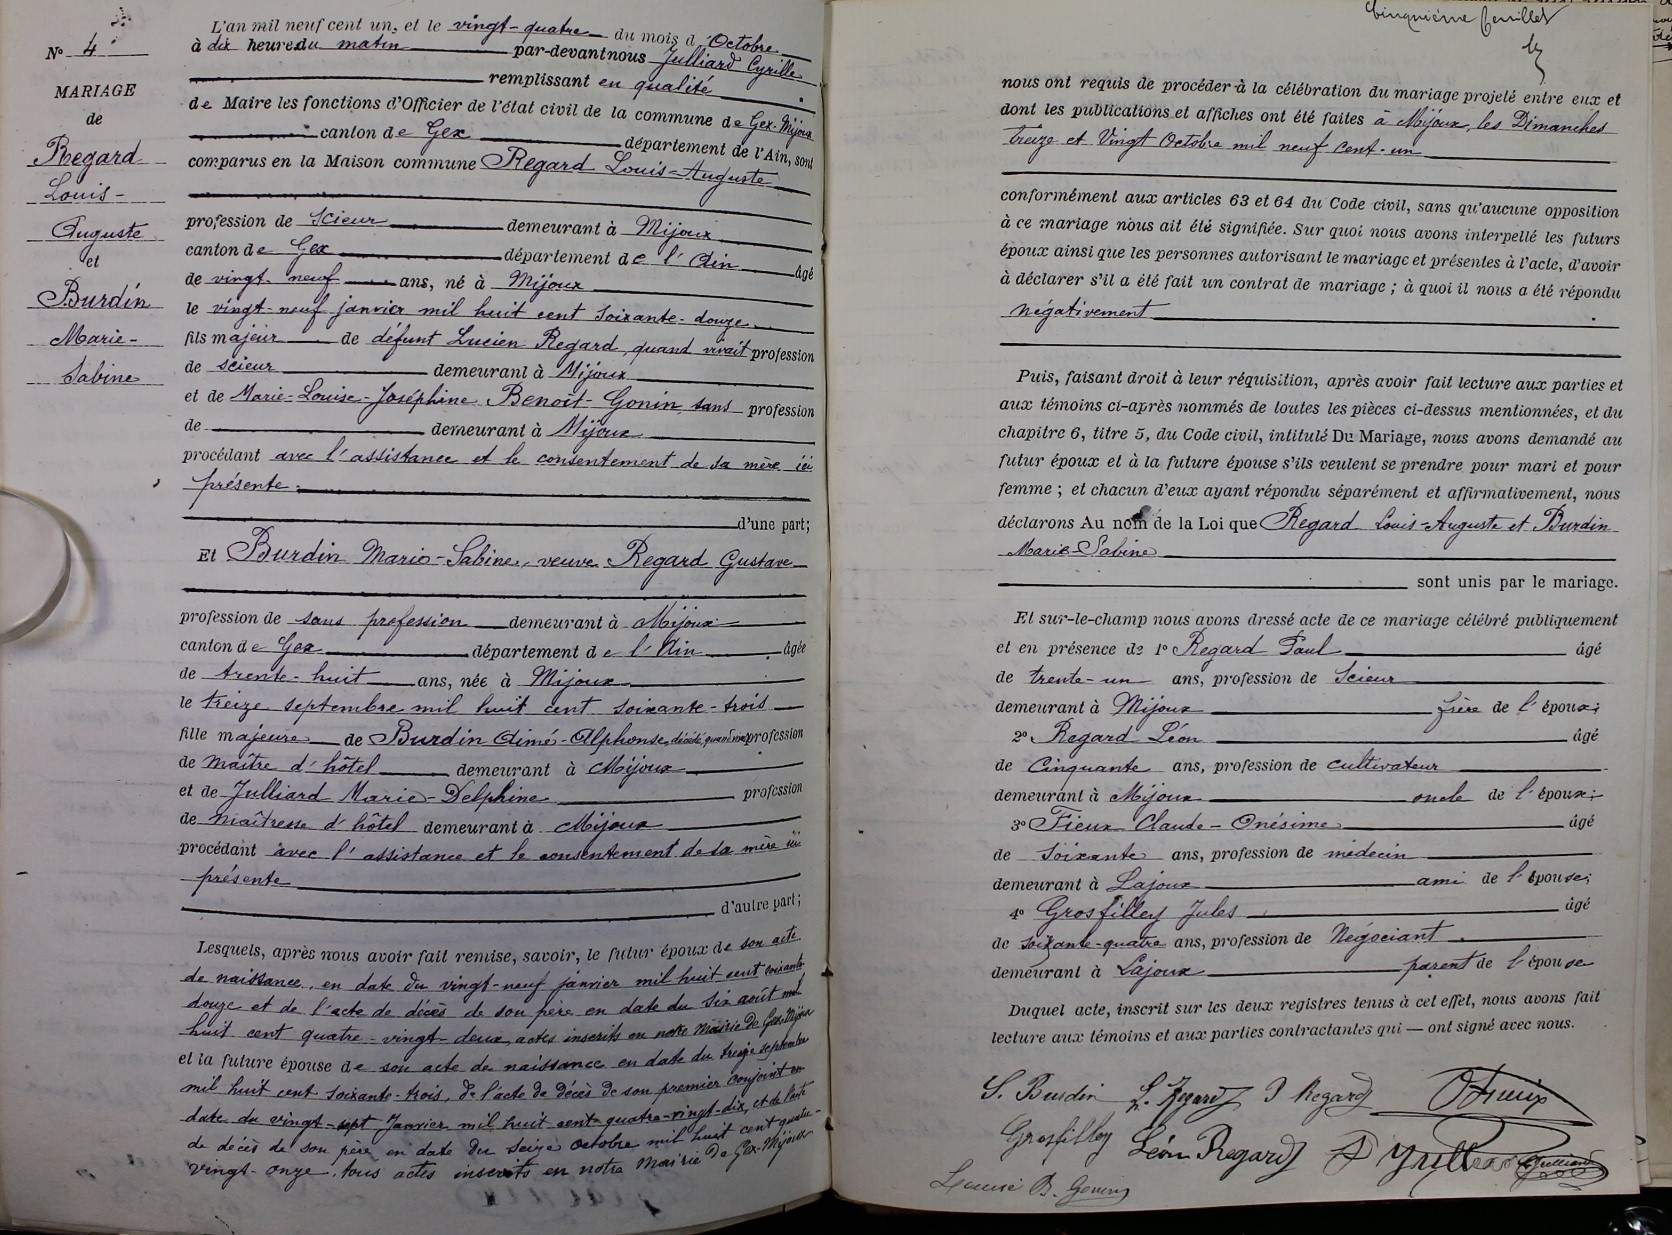 N° 4
MARIAGE
de
Regard
Louis-
Auguste
et
Burdin
Marie-
Sabine
L'an mil neuf cent un, et le vingt-quatre du mois d'Octobre
à dix heures du matin par-devant nous Julliard Cyrille
remplissant en qualité
de Maire les fonctions d'Officier de l'état civil de la commune de Gex-Mijoux
canton de Gex département de l'Ain, sont
comparus en la Maison commune Regard Louis-Auguste
profession de Scieur demeurant à Mijoux
canton de Gex département de l'Ain âgé
de vingt-neuf ans, né à Mijoux
le vingt-neuf janvier mil huit cent soixante-douze
fils majeur de défunt Lucien Regard, quand vivait profession
de scieur demeurant à Mijoux
et de Marie-Louise-Joséphine Benoît-Gonin, sans profession
de demeurant à Mijoux
procédant avec l'assistance et le consentement de sa mère ici
présente.
d'une part;
Et Burdin Marie-Sabine, veuve Regard Gustave
profession de sans profession demeurant à Mijoux
canton de Gex département de l'Ain âgée
de trente-huit ans, née à Mijoux
le treize septembre mil huit cent soixante-trois
fille majeure de Burdin Aimé-Alphonse, décédé, quand vivait profession
de Maître d'hôtel demeurant à Mijoux
et de Julliard Marie-Delphine profession
de Maîtresse d'hôtel demeurant à Mijoux
procédant avec l'assistance et le consentement de sa mère ici
présente
d'autre part;
Lesquels, après nous avoir fait remise, savoir, le futur époux de son acte
de naissance, en date du vingt-neuf janvier mil huit cent soixante
douze et de l'acte de décès de son père en date du six août mil
huit cent quatre-vingt-deux, actes inscrits en notre Mairie de Gex-Mijoux
et la future épouse de son acte de naissance en date du treize septembre
mil huit cent soixante-trois, de l'acte de décès de son premier conjoint en
date du vingt-sept Janvier mil huit cent quatre-vingt-dix, et de l'acte
de décès de son père en date du seize octobre mil huit cent quatre-
vingt-onze, tous actes inscrits en notre Mairie de Gex-Mijoux
Cinquième feuillet
nous ont requis de procéder à la célébration du mariage projeté entre eux et
dont les publications et affiches ont été faites à Mijoux, les Dimanches
Treize et Vingt Octobre mil neuf cent-un
conformément aux articles 63 et 64 du Code civil, sans qu'aucune opposition
à ce mariage nous ait été signifiée. Sur quoi nous avons interpellé les futurs
époux ainsi que les personnes autorisant le mariage et présentes à l'acte, d'avoir
à déclarer s'il a été fait un contrat de mariage ; à quoi il nous a été répondu
négativement
Puis, faisant droit à leur réquisition, après avoir fait lecture aux parties et
aux témoins ci-après nommés de toutes les pièces ci-dessus mentionnées, et du
chapitre 6, titre 5, du Code civil, intitulé Du Mariage, nous avons demandé au
futur époux et à la future épouse s'ils veulent se prendre pour mari et pour
femme ; et chacun d'eux ayant répondu séparément et affirmativement, nous
déclarons Au nom de la Loi que Regard Louis-Auguste et Burdin
Marie-Sabine
sont unis par le mariage.
Et sur-le-champ nous avons dressé acte de ce mariage célébré publiquement
et en présence de 1° Regard Paul âgé
de trente-un ans, profession de Scieur
demeurant à Mijoux frère de l'époux;
2° Regard Léon âgé
de Cinquante ans, profession de cultivateur
demeurant à Mijoux oncle de l'époux;
3° Fieux Claude-Onésime âgé
de soixante ans, profession de médecin
demeurant à Lajoux ami de l'épouse;
4° Grosfilley Jules âgé
de soixante-quatre ans, profession de Négociant
demeurant à Lajoux parent de l'épouse
Duquel acte, inscrit sur les deux registres tenus à cet effet, nous avons fait
lecture aux témoins et aux parties contractantes qui — ont signé avec nous.
S. Burdin L. Regard P Regard O Fieux
Grosfilley Léon Regard Julliard
Louise B. Gonin